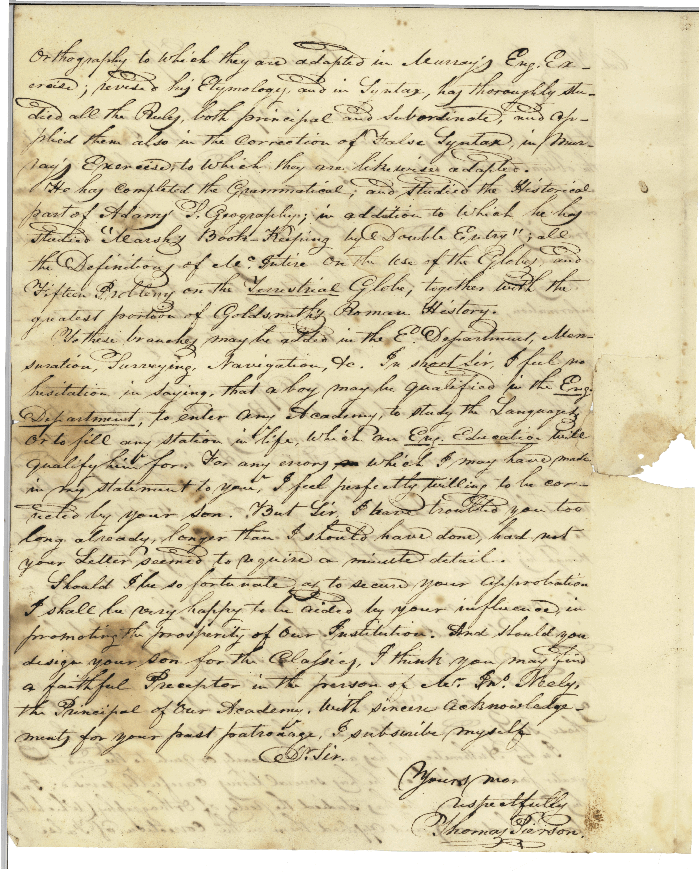 Orthography to which they are adapted in Murray's Eng. Ex-
ercise; revised his Etymology, and in Syntax, has thoroughly stu-
died all the Rules, both principal and Subordinate, and ap-
plied them also in the correction of False Syntax, in Mur-
ray's Exercises, to which they are likewise adapted.
He has completed the Grammatical, and studied the Historical
part of Adams' S. Geography; in addition to which he has
studied "Marsh's Book-Keeping by Double Entry"; all
the Definitions of Mc. Intire on the use of the Globes, and
Fifteen Problems on the Terrestrial Globe, together with the
greatest portion of Goldsmith's Roman History.
To these branches may be added in the E. Department, Men-
suration, Surveying, Navigation, &c. In short Sir, I feel no
hesitation in saying, that a boy may be qualified in the Eng.
Department, to enter any Academy, to study the Languages,
or to fill any station in life, which an Eng. Education will
qualify him for. For any errors which I may have made
in my statement to you, I feel perfectly willing to be cor-
rected by your son. But Sir, I have troubled you too
long already, longer than I should have done, had not
your Letter seemed to require a minute detail.
Should I be so fortunate as to secure your approbation
I shall be very happy to be aided by your influence, in
promoting the prosperity of our Institution. And should you
design your son for the Classics, I think you may find
a faithful Preceptor in the person of Mr. Jno. Neely,
the Principal of our Academy. With sincere acknowledge-
ments for your past patronage, I subscribe myself
Dr. Sir.
Yours mos
respectfully
Thomas Pierson.